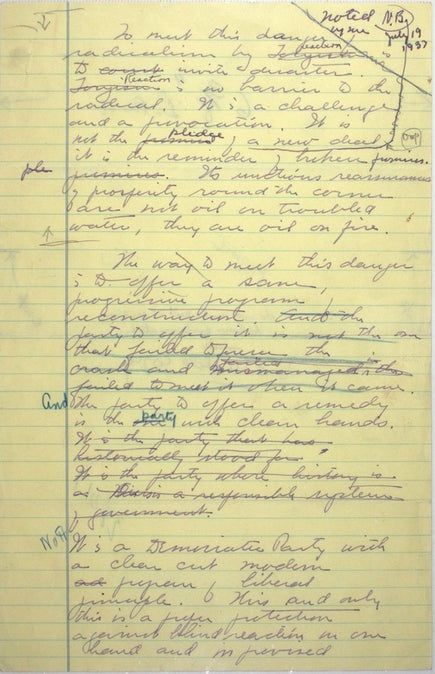 noted N.B.
by me July 19
1937
To meet this danger
radicalism by Toryism is
reaction
to court invite disaster.
Reaction
Toryism is no barrier to the
radical. It is a challenge
and a provocation. It is
pledge
not the promise of a new deal,
it is the reminder of broken promises.
ple promises. Its unctious reassurances
of prosperity round the corner
are not oil on troubled
water, they are oil on fire.
The way to meet this danger
is to offer a sane,
progressive program of
reconstruction. And the
party to offer it is not the one
that failed to foresee the
crash and
failed to meet it when it came.
And The party to offer a remedy
party
is the with clean hands.
It is the party that has
historically stood for
It is the party whose history is
as a responsible system
of government.
It is a Democratic Party with
a clear cut modern
program of liberal
principle. This and only
this is a proper protection
against blind reaction on one
hand and improvised